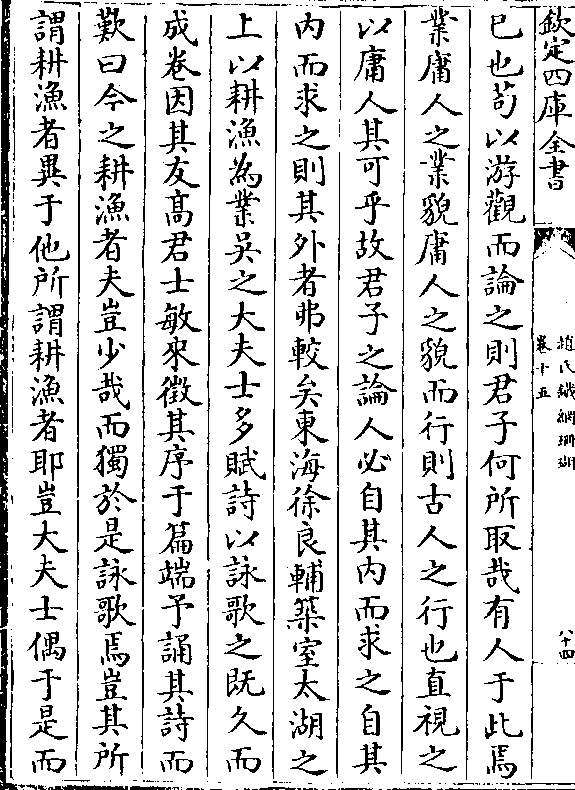 欽定四庫全書
趙氏鐵網珊瑚
卷十五
八十四
已也苟以游觀而論之則君子何所取哉有人于此焉
業庸人之業貌庸人之貌而行則古人之行也直視之
以庸人其可乎故君子之論人必自其内而求之自其
内而求之則其外者弗較矣東海徐良輔築室太湖之
上以耕漁為業吳之大夫士多賦詩以詠歌之既久而
成卷因其友髙君士敏來徵其序于篇端予誦其詩而
歎曰今之耕漁者夫豈少哉而獨於是詠歌焉豈其所
謂耕漁者異于他所謂耕漁者耶豈大夫士偶于是而